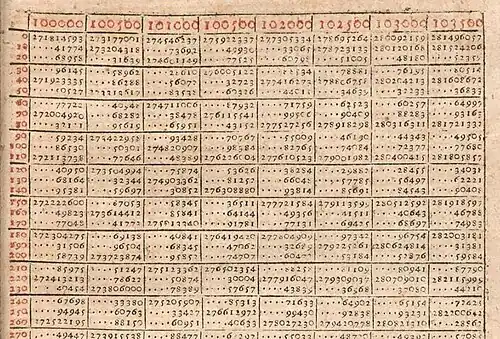 100000 100500 101000 100500 102000 102500 103000 103500
0 271814593 273177001 274546237 275922337 277305334 278695264 280092159 281496057
10 ..41774 273204318 ..73692 ..49930 ..33065 278723133 280120168 281524206
20 ..68958 ..31639 274601149 ..77525 ..60798 ..51005 ..48180 ..52359
30 ..96145 ..58962 ..28610 276005122 ..78881 ..76195
40 ..86288 ..56073 ..32723 277416274 278806758 280204213 281608672
50 ..50527 ..83538 ..60326 ..44011 ..34639 ..32233 ..36833
60 ..77722 ..40948 274711006 ..87932 ..71759 ..62523 ..60257 ..64997
70 272004920 ..68282 ..38478 276115541 ..99506 ..90409 ..88283 ..93163
80 ..32121 ..95619 ..65951 ..43152 277527256 278918298 280316311 281721332
90 ..93428 ..70767 ..55009 ..46190 ..44343 ..49505
100 ..86530 ..50301 274820907 ..98384 ..82765 ..74084 ..72377 ..77680
110 ..77646 ..48389 276226004 277610523 279001982 280400415 281805857
120 ..40950 273504994 ..75874 ..53626 ..38284 ..29882 ..28455
130 ..68164 ..32344 274903362 ..81252 ..66048 ..57785 ..56499 ..62221
140 ..95381 ..59697 ..30852 276308880 ..93814 ..85691 ..84544
150 272222600 ..87053 ..58345 ..36511 277721584 279113599 280512593 281918595
160 ..49823 273614412 ..85841 ..64144 ..49356 ..41511 ..40643 ..46788
170 ..77048 ..41773 275013340 ..91781 ..77131 ..69425 ..68697 ..74983
180 272304275 ..69138 ..40841 276419420 277804909 ..97342 ..96754 282003181
190 ..31506 ..96505 ..68345 ..47062 ..32689 279225261 280624814 ..31381
200 ..58739 273723874 ..95852 ..74707 ..60473 ..53184 ..52876 ..59584
210 ..85975 ..51247 275123362 276502354 ..88258 ..81109 ..80941 ..87790
220 272413213 ..78627 ..50874 ..30004 277916047 279309037 280709010 282115999
230 ..40454 273806000 ..78389 ..57657 ..43839 ..36968
240 ..67698 ..33380 275205907 ..85313 ..71633 ..64902 ..65154
250 ..94945 ..60763 ..33427 276612972 ..99430 ..92838 ..93231 282200642
260 272522195 ..88150 ..60951 ..40633 278027230 279420778 280821310
270 ..49447 273915538 ..88477